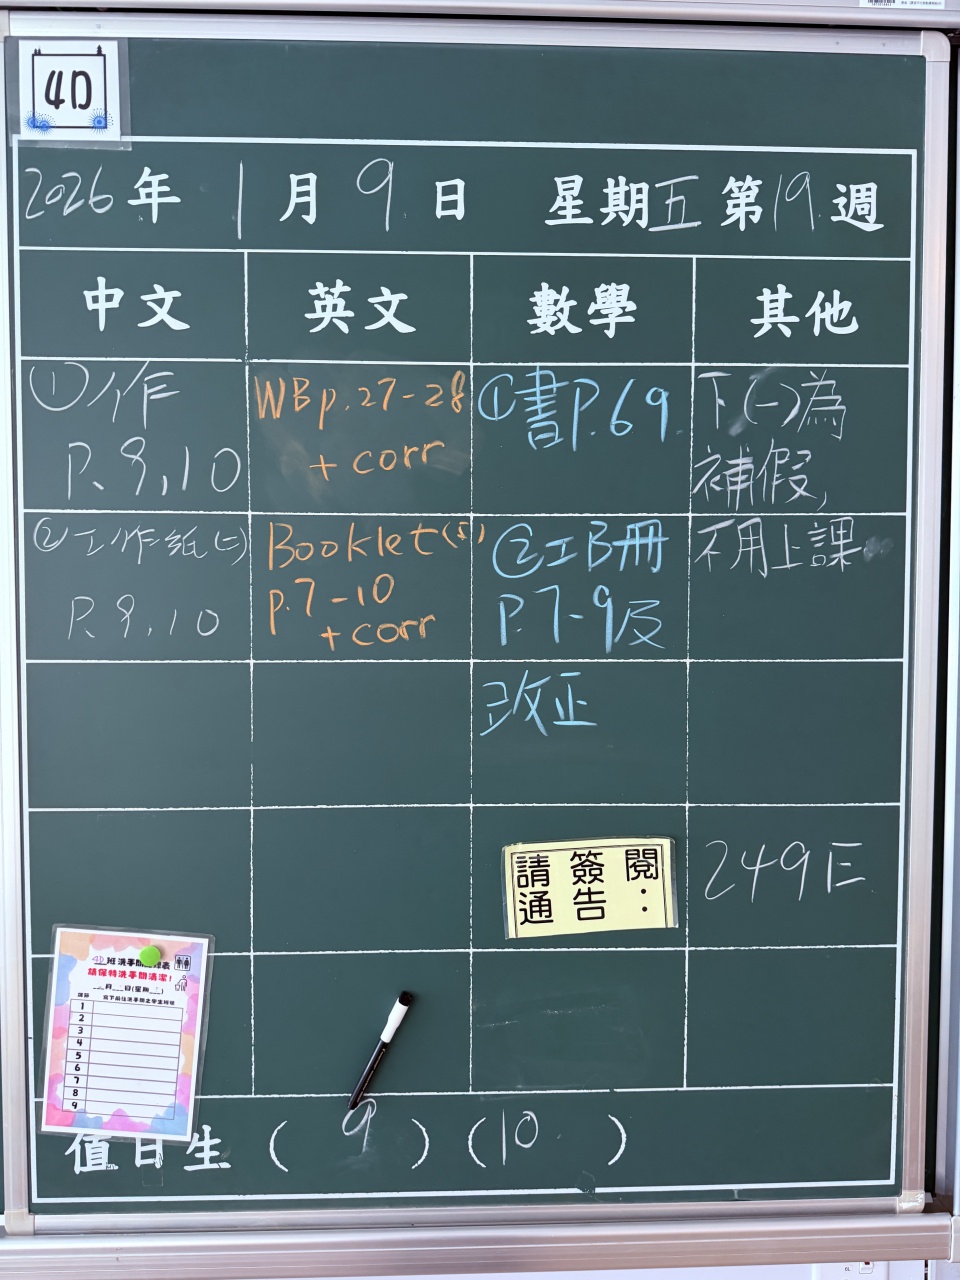 4D
2026年 1月 9日 星期五 第19週
中文
英文
數學
其他
①作
P.9,10
②工作紙(二)
P.9,10
WB p.27-28
+ corr
Booklet(5)
p.7-10
+ corr
①書P.69
②工B冊
P.7-9及
改正
下(一)為
補假,
不用上課
請簽閱
通告:
249E
4D班洗手間
請保持洗手間清潔!
月 日(星期 )
1
2
3
4
5
6
7
8
9
值日生 ( 9 ) (10 )